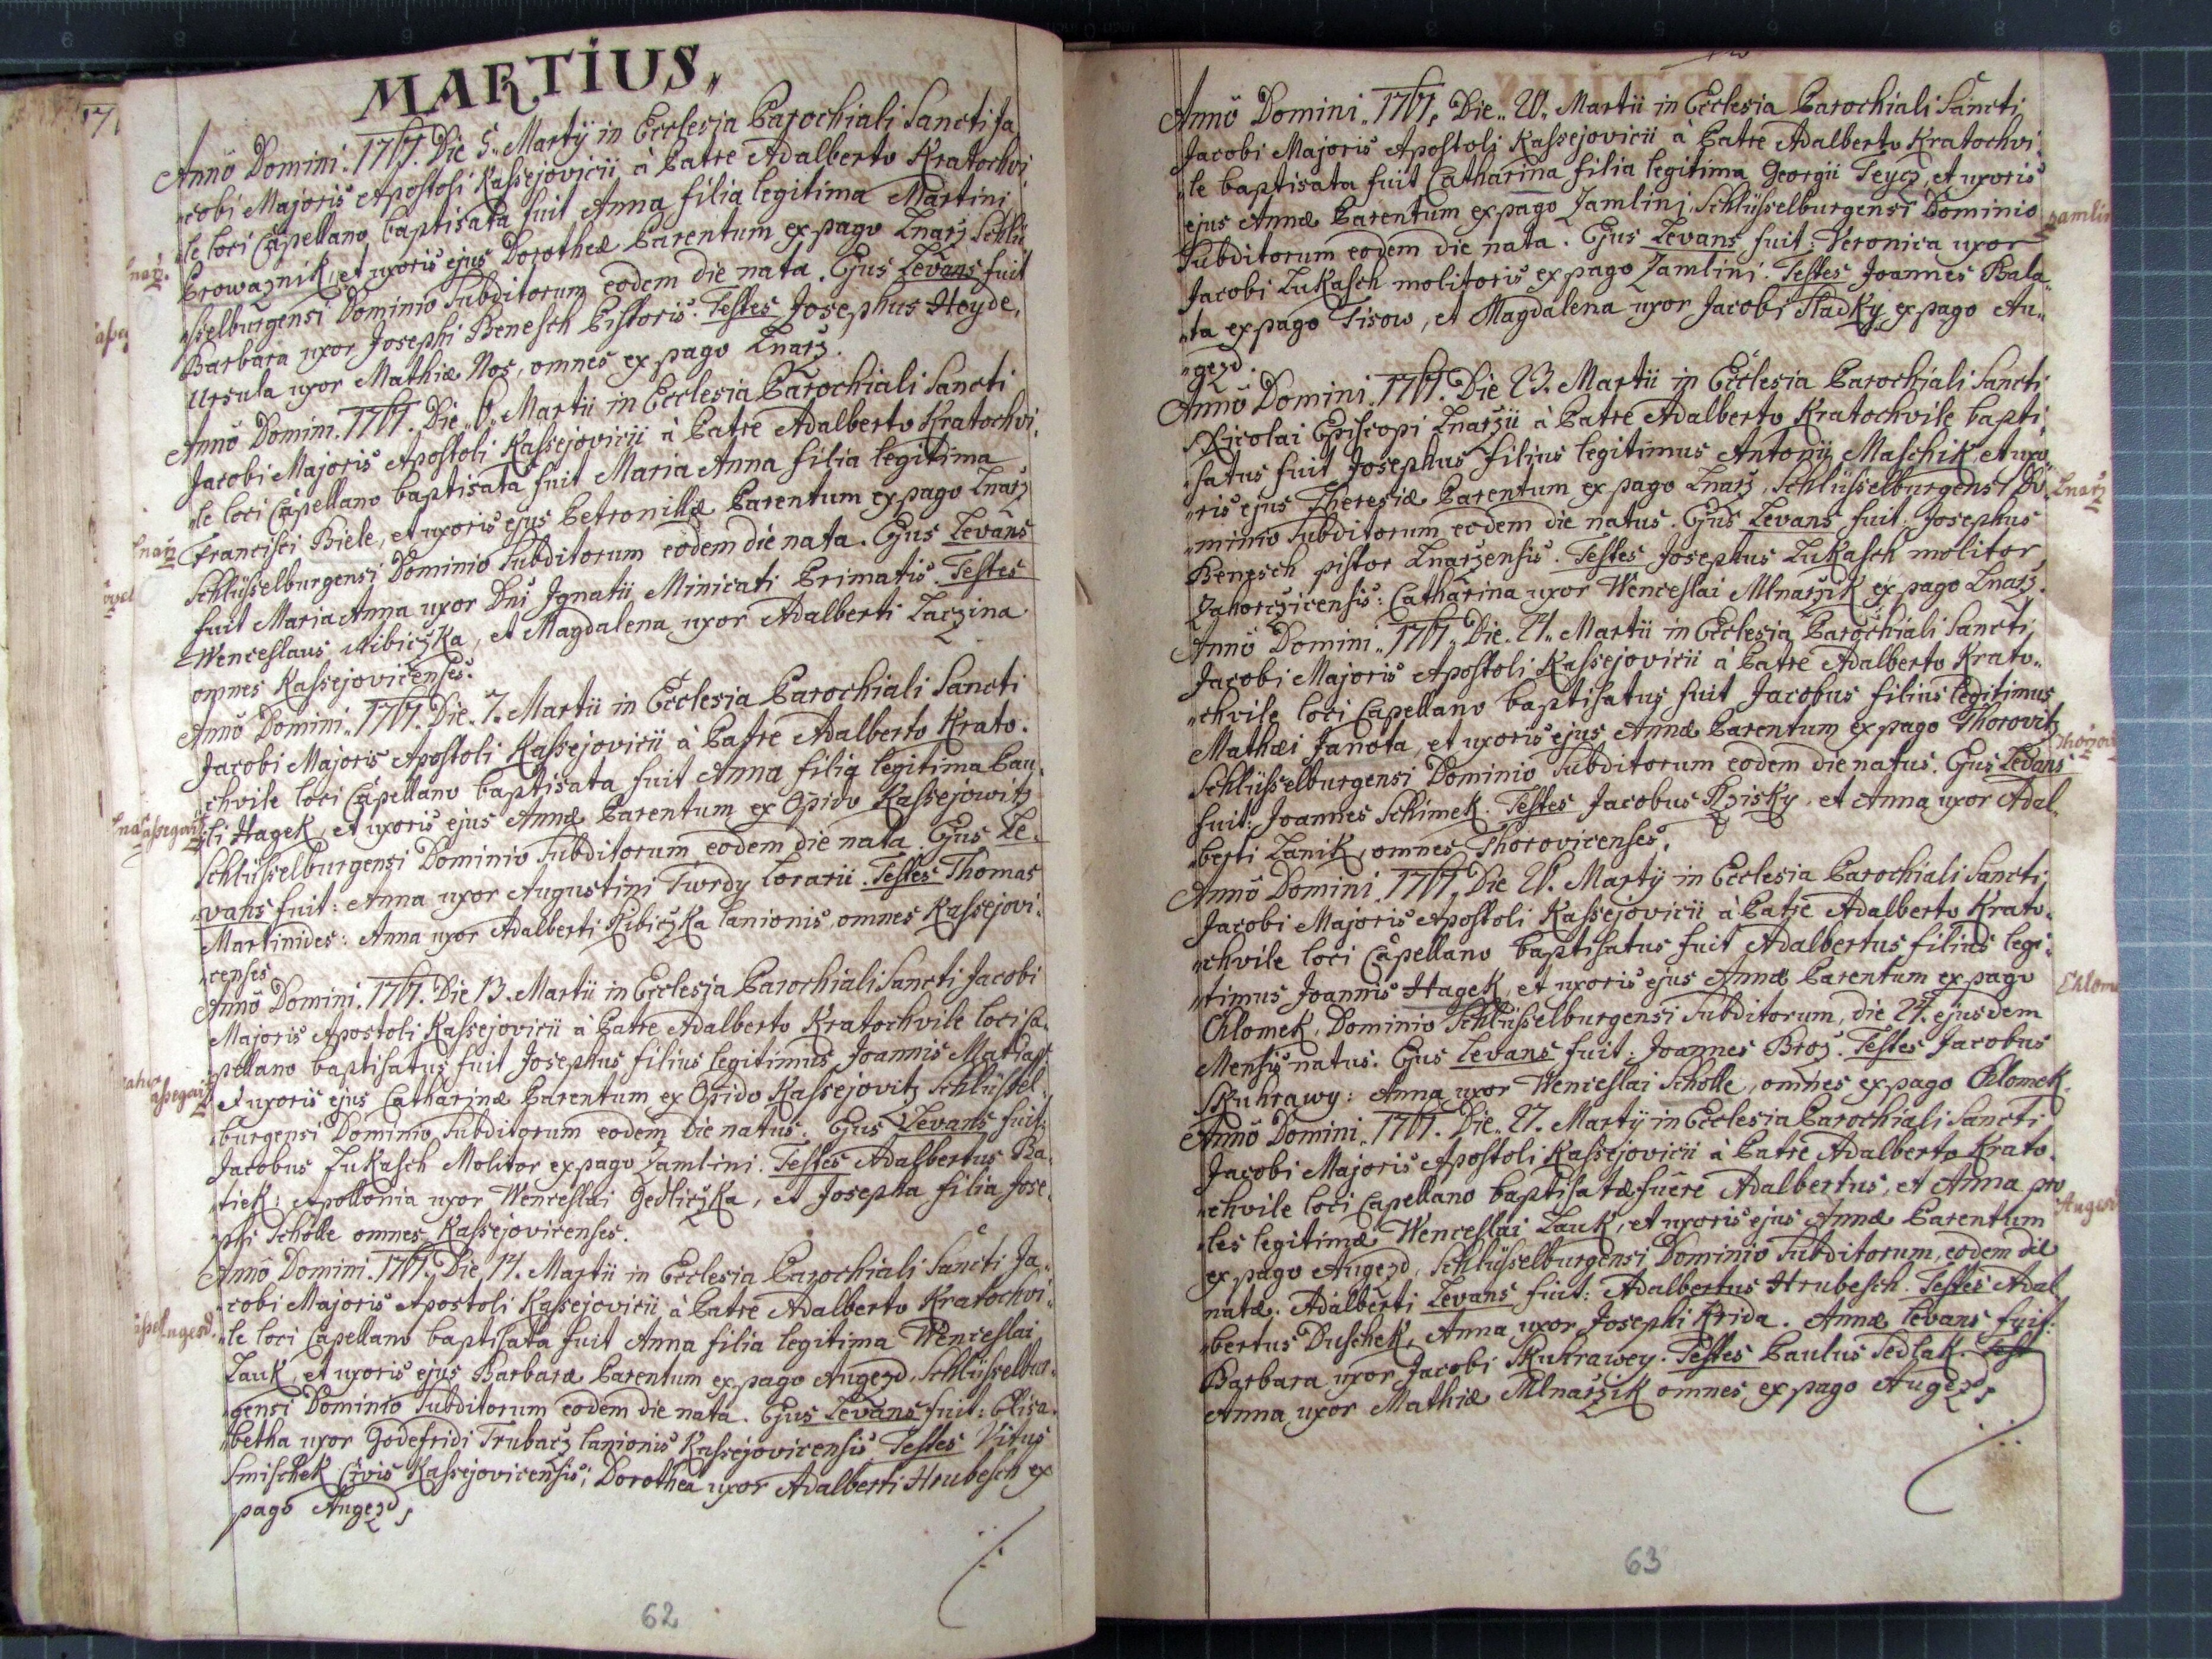 MARTIUS„
Anno Domini. 1761. Die 5. Martÿ in Ecclesia Parochiali Sancti Ja
„cobi Majoris Apostoli Kassejovicii à Patre Adalberto Kratochvi
„le loci Capellano baptisata fuit Anna filia legitima Martini
Prowaznik, et uxoris ejus Dorotheæ Parentum ex pago Lnarz Schlü
„sselburgensi Dominio Subditorum eodem die nata. Ejus Levans fuit
Barbara uxor Josephi Benesch Pistoris. Testes Josephus Heyde,
Ursula uxor Mathiæ Nos, omnes ex pago Lnarz.
Anno Domini. 1761. Die 6. Martii in Ecclesia Parochiali Sancti
Jacobi Majoris Apostoli Kassejovicii à Patre Adalberto Kratochvi
„le loci Capellano baptisata fuit Maria Anna filia legitima
Francisci Biele, et uxoris ejus Petronillæ Parentum ex pago Lnarz
Schlüsselburgensi Dominio Subditorum eodem die nata. Ejus Levans
fuit Maria Anna uxor Dni Ignatii Minicati Primatis. Testes
Wenceslaus Ribiczka, et Magdalena uxor Adalberti Laczina
omnes Kassejovicenses.
Anno Domini„ 1761. Die. 7. Martii in Ecclesia Parochiali Sancti
Jacobi Majoris Apostoli Kassejovicii à Patre Adalberto Krato.
chvile loci Capellano baptisata fuit Anna filia legitima Pau„
li Hagek, et uxoris ejus Annæ Parentum ex Opido Kassejowitz
Schlüsselburgensi Dominio Subditorum eodem die nata. Ejus Le„
„vans fuit: Anna uxor Augustini Twrdy Lorarii. Testes Thomas
Martinides: Anna uxor Adalberti Ribiczka lanionis, omnes Kassejovi„
„censes
Anno Domini. 1761. Die 13. Martii in Ecclesia Parochiali Sancti Jacobi
Majoris Apostoli Kassejovicii à Patre Adalberto Kratochvile loci Ca„
„pellano baptisatus fuit Josephus filius legitimus Joannis Mathas
et uxoris ejus Catharinæ Parentum ex Opido Kassejovitz Schlüssel„
„burgensi Dominio Subditorum eodem die natus. Ejus Levans fuit:
Jacobus Lukasch Molitor ex pago Zamlini. Testes Adalbertus Ba„
„tiek, Apollonia uxor Wenceslai Gedliczka, et Josepha filia Jose„
„phi Scholle omnes Kassejovicenses.
Anno Domini. 1761. Die 14. Martii in Ecclesia Parochiali Sancti Ja„
„cobi Majoris Apostoli Kassejovicii à Patre Adalberto Kratochvi„
„le loci Capellano baptisata fuit Anna filia legitima Wenceslai
Lauk, et uxoris ejus Barbaræ Parentum ex pago Augezd, Schlüsselbur„
„gensi Dominio Subditorum eodem die nata. Ejus Levans fuit: Elisa„
„betha uxor Godefridi Trubacz lanionis Kassejovicensis. Testes Vitus
Smischek Civis Kassejovicensis; Dorothea uxor Adalberti Hrubesch ex
pago Augezd
62
Anno Domini„ 1761. Die„ 20„ Martii in Ecclesia Parochiali Sancti
Jacobi Majoris Apostoli Kassejovicii à Patre Adalberto Kratochvi„
„le baptisata fuit Catharina filia legitima Georgii Teycz, et uxoris
ejus Annæ Parentum ex pago Zamlini, Schlüsselburgensi Dominio
Subditorum eodem die nata. Ejus Levans fuit: Veronica uxor
Jacobi Lukasch molitoris ex pago Zamlini. Testes Joannes Bala„
„ta ex pago Tisow, et Magdalena uxor Jacobi Sladky ex pago Au„
„gezd.
Zamlin
Anno Domini. 1761. Die 23. Martii in Ecclesia Parochiali Sancti
Nicolai Episcopi Lnarzii à Patre Adalberto Kratochvile bapti„
„satus fuit Josephus filius legitimus Antonÿ Maschik, et uxo„
„ris ejus Theresiæ Parentum ex pago Lnarz, Schlüsselburgensi Do„
„minio Subditorum eodem die natus. Ejus Levans fuit: Josephus
Benesch pistor Lnarzensis. Testes Josephus Lukasch molitor
Zahorczicensis: Catharina uxor Wenceslai Mlnarzik ex pago Lnarz.
Lnarz
Anno Domini„ 1761„ Die. 24„ Martii in Ecclesia Parochiali Sancti
Jacobi Majoris Apostoli Kassejovicii à Patre Adalberto Krato„
„chvile loci Capellano baptisatus fuit Jacobus filius legitimus
Mathæi Janota, et uxoris ejus Annæ Parentum ex pago Thorovitz
Schlüsselburgensi Dominio Subditorum eodem die natus. Ejus Levans
fuit: Joannes Schimek. Testes Jacobus Rzisky, et Anna uxor Adal„
„berti Lanik, omnes Thorovicenses.
Anno Domini. 1761. Die 26. Martÿ in Ecclesia Parochiali Sancti
Jacobi Majoris Apostoli Kassejovicii à Patre Adalberto Krato„
„chvile loci Capellano baptisatus fuit Adalbertus filius legi„
„timus Joannis Hagek, et uxoris ejus Annæ Parentum ex pago
Chlomek, Dominio Schlüsselburgensi Subditorum, die 24. ejusdem
Mensis natus. Ejus Levans fuit: Joannes Broz. Testes Jacobus
Skuhrawy: Anna uxor Wenceslai Scholle, omnes ex pago Chlomek.
Anno Domini„ 1761. Die„ 27. Martÿ in Ecclesia Parochiali Sancti
Jacobi Majoris Apostoli Kassejovicii à Patre Adalberto Krato„
„chvile loci Capellano baptisatæ fuere Adalbertus, et Anna pro
„les legitimæ Wenceslai Lauk, et uxoris ejus Annæ Parentum
ex pago Augezd, Schlüsselburgensi Dominio Subditorum, eodem die
natæ. Adalberti Levans fuit: Adalbertus Hrubesch. Testes Adal„
„bertus Duschek, Anna uxor Josephi Krida. Annæ Levans fuit:
Barbara uxor Jacobi Skuhrawey. Testes Paulus Sedlak. Test
Anna uxor Mathiæ Mlnarzik omnes ex pago Augezd
63